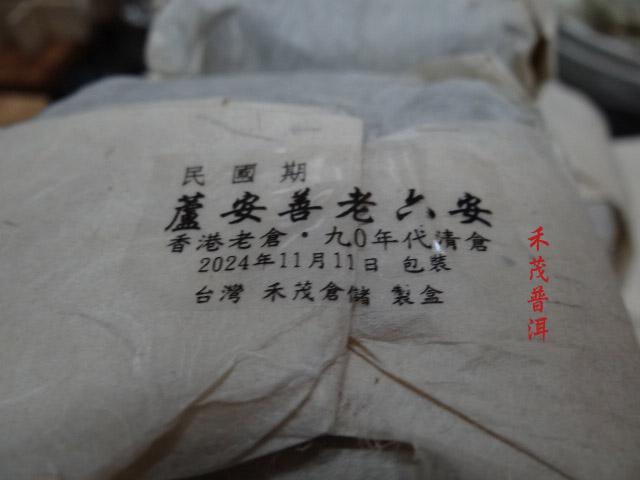 民國期
蘆安善老六安
香港老倉·九0年代清倉
2024年11月11日 包裝
台灣 禾茂倉儲 製盒
禾茂普洱